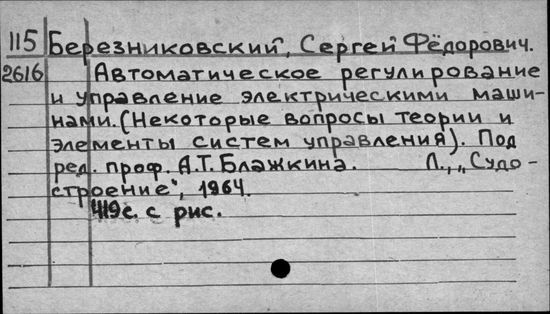 115 Березниковский, Сергей Фёдорович.
2616 Автоматическое регулирование
и управление электрическими маши-
нами. (Некоторые вопросы теории и
элементы систем управления). Под
ред. проф. А.Т. Блажкина. Л., „Судо-
строение", 1964.
419 с. с рис.